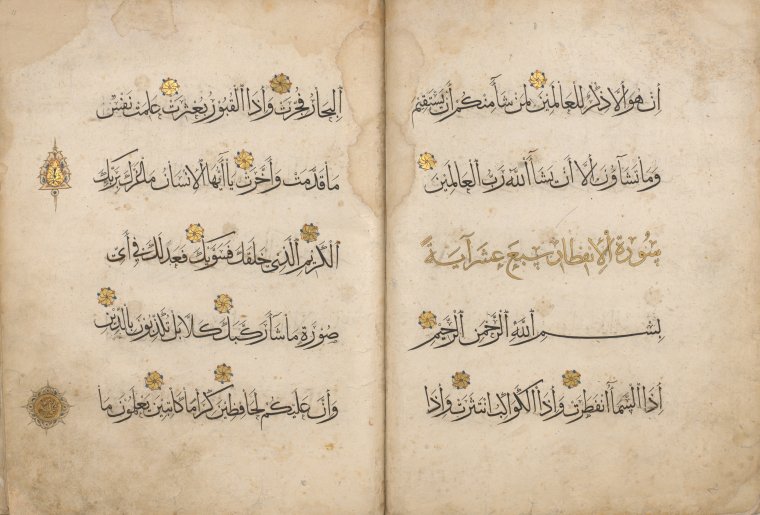 ان هو الا ذكر للعالمين لمن شا منكم أن يستقيم
وما تشاؤن الا أن يشأ الله رب العالمين
سورة الانفطار سبع عشر آية
بسم الله الرحمن الرحيم
اذا السما أنفطرت واذا الكواكب انتثرت واذا
البحار فجرت واذا القبور بعثرت علمت نفس
ما قدمت وأخرت يا أيها الانسان ما غرك بربك
الكريم الذي خلقك فسويك فعدلك في أي
صورة ما شا ركبك كلا بل تكذبون بالدين
وان عليكم لحافظين كراما كاتبين يعلمون ما